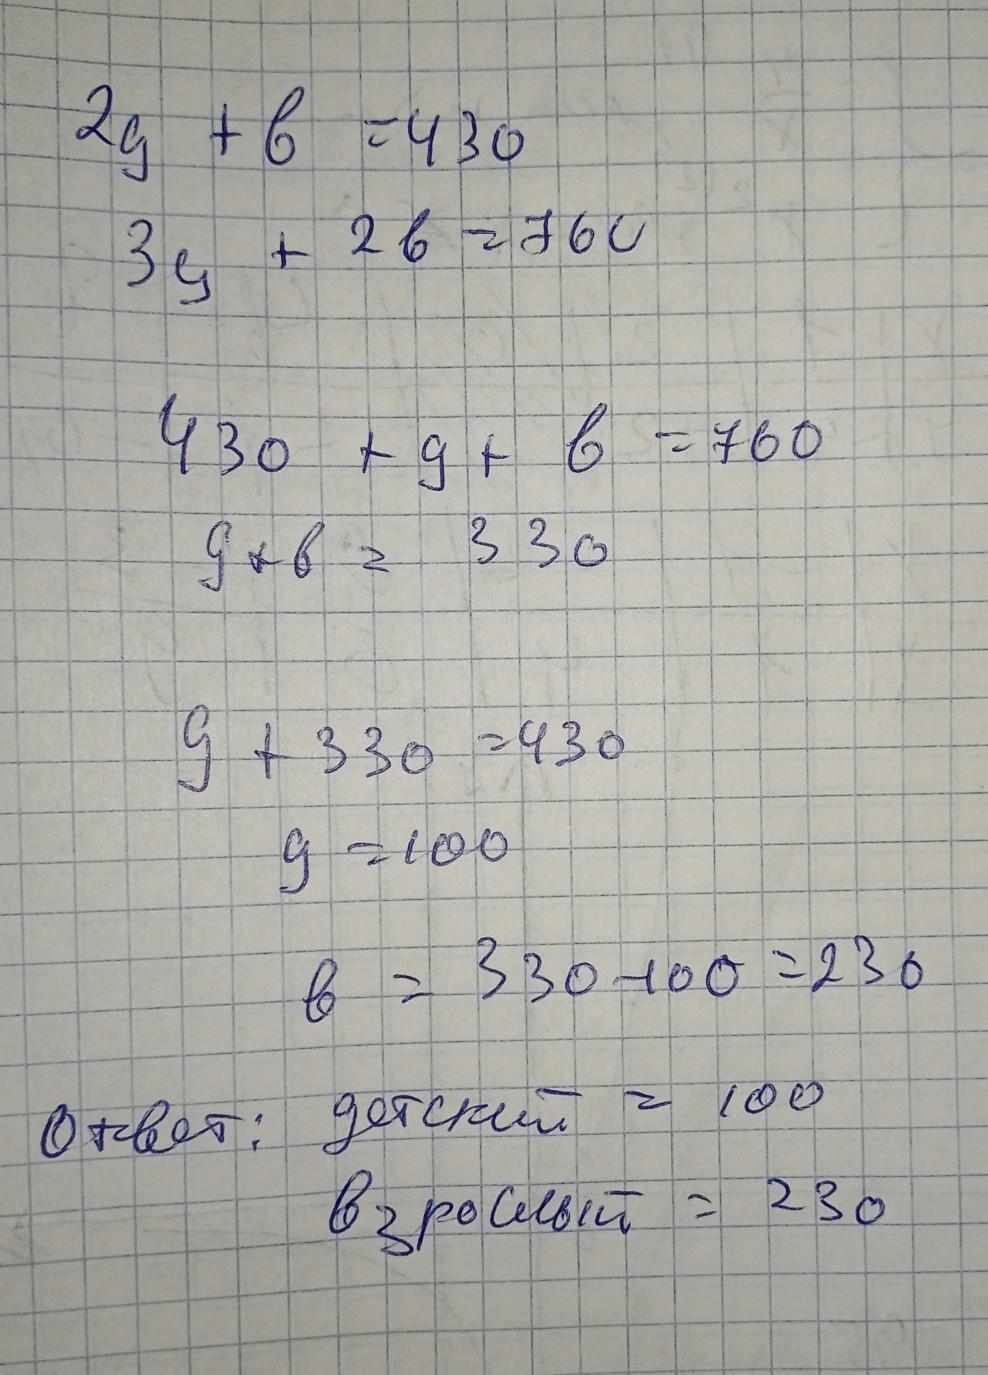 2д + в = 430
3д + 2в = 760
430 + д + в = 760
д + в = 330
д + 330 = 430
д = 100
в = 330 - 100 = 230
Ответ: детский = 100
взрослый = 230